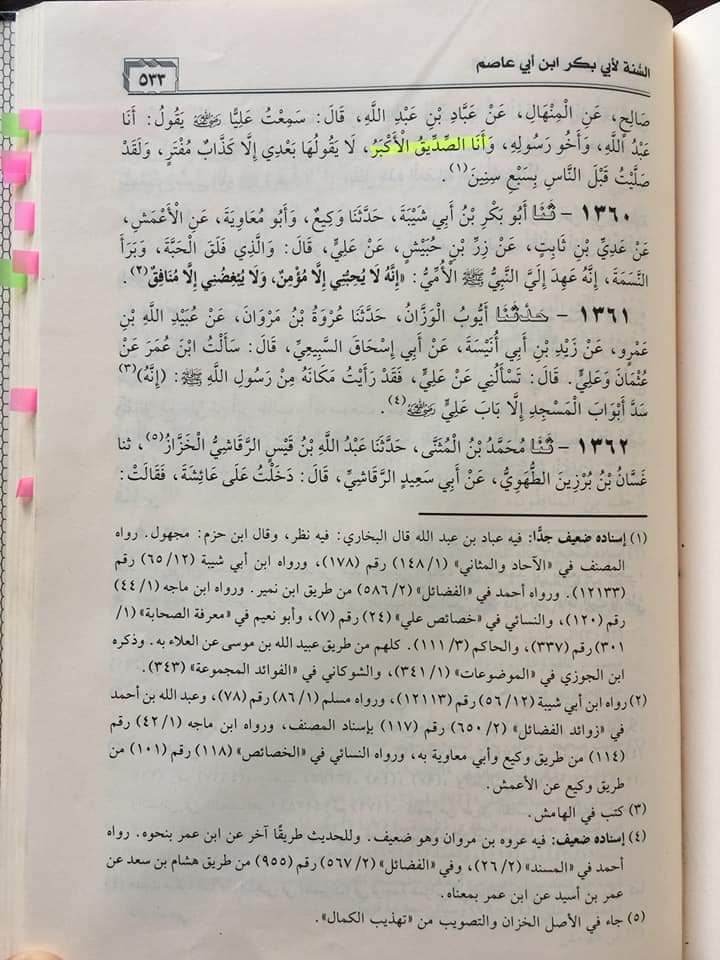 السُّنة لأبي بكر ابن أبي عاصم
٥٣٣
صَالِحٍ، عَنِ الْمِنْهَالِ، عَنْ عَبَّادِ بْنِ عَبْدِ اللَّهِ، قَالَ: سَمِعْتُ عَلِيًّا رضي الله عنه يَقُولُ: أَنَا
عَبْدُ اللَّهِ، وَأَخُو رَسُولِهِ، وَأَنَا الصِّدِّيقُ الْأَكْبَرُ، لَا يَقُولُهَا بَعْدِي إِلَّا كَذَّابٌ مُفْتَرٍ، وَلَقَدْ
صَلَّيْتُ قَبْلَ النَّاسِ بِسَبْعِ سِنِينَ(١).
١٣٦٠ - ثَنَا أَبُو بَكْرِ بْنُ أَبِي شَيْبَةَ، حَدَّثَنَا وَكِيعٌ، وَأَبُو مُعَاوِيَةَ، عَنِ الْأَعْمَشِ،
عَنْ عَدِيِّ بْنِ ثَابِتٍ، عَنْ زِرِّ بْنِ حُبَيْشٍ، عَنْ عَلِيٍّ، قَالَ: وَالَّذِي فَلَقَ الْحَبَّةَ، وَبَرَأَ
النَّسَمَةَ، إِنَّهُ عَهِدَ إِلَيَّ النَّبِيُّ ﷺ الْأُمِّيُّ: «إِنَّهُ لَا يُحِبُّنِي إِلَّا مُؤْمِنٌ، وَلَا يُبْغِضُنِي إِلَّا مُنَافِقٌ»(٢).
١٣٦١ - حَدَّثَنَا أَيُّوبُ الْوَزَّانُ، حَدَّثَنَا عُرْوَةُ بْنُ مَرْوَانَ، عَنْ عُبَيْدِ اللَّهِ بْنِ
عَمْرٍو، عَنْ زَيْدِ بْنِ أَبِي أُنَيْسَةَ، عَنْ أَبِي إِسْحَاقَ السَّبِيعِيِّ، قَالَ: سَأَلْتُ ابْنَ عُمَرَ عَنْ
عُثْمَانَ وَعَلِيٍّ. قَالَ: تَسْأَلُنِي عَنْ عَلِيٍّ، فَقَدْ رَأَيْتُ مَكَانَهُ مِنْ رَسُولِ اللَّهِ ﷺ: (إِنَّهُ)(٣)
سَدَّ أَبْوَابَ الْمَسْجِدِ إِلَّا بَابَ عَلِيٍّ رضي الله عنه(٤).
١٣٦٢ - ثَنَا مُحَمَّدُ بْنُ الْمُثَنَّى، حَدَّثَنَا عَبْدُ اللَّهِ بْنُ قَيْسٍ الرَّقَاشِيُّ الْخَزَّازُ(٥)، ثنا
غَسَّانُ بْنُ بُرْزِينَ الطُّهَوِيُّ، عَنْ أَبِي سَعِيدٍ الرَّقَاشِيِّ، قَالَ: دَخَلْتُ عَلَى عَائِشَةَ، فَقَالَتْ:
(١) إسناده ضعيف جدًّا: فيه عباد بن عبد الله قال البخاري: فيه نظر، وقال ابن حزم: مجهول. رواه
المصنف في «الآحاد والمثاني» (١/ ١٤٨) رقم (١٧٨)، ورواه ابن أبي شيبة (١٢/ ٦٥) رقم
(١٢١٣٣). ورواه أحمد في «الفضائل» (٢/ ٥٨٦) من طريق ابن نمير. ورواه ابن ماجه (١/ ٤٤)
رقم (١٢٠)، والنسائي في «خصائص علي» (٢٤) رقم (٧)، وأبو نعيم في «معرفة الصحابة» (١/
٣٠١) رقم (٣٣٧)، والحاكم (٣/ ١١١). كلهم من طريق عبيد الله بن موسى عن العلاء به. وذكره
ابن الجوزي في «الموضوعات» (١/ ٣٤١)، والشوكاني في «الفوائد المجموعة» (٣٤٣).
(٢) رواه ابن أبي شيبة (١٢/ ٥٦) رقم (١٢١١٣)، ورواه مسلم (١/ ٨٦) رقم (٧٨)، وعبد الله بن أحمد
في «زوائد الفضائل» (٢/ ٦٥٠) رقم (١١٧) بإسناد المصنف، ورواه ابن ماجه (١/ ٤٢) رقم
(١١٤) من طريق وكيع وأبي معاوية به، ورواه النسائي في «الخصائص» (١١٨) رقم (١٠١) من
طريق وكيع عن الأعمش.
(٣) كتب في الهامش.
(٤) إسناده ضعيف: فيه عروه بن مروان وهو ضعيف. وللحديث طريقًا آخر عن ابن عمر بنحوه. رواه
أحمد في «المسند» (٢/ ٢٦)، وفي «الفضائل» (٢/ ٥٦٧) رقم (٩٥٥) من طريق هشام بن سعد عن
عمر بن أسيد عن ابن عمر بمعناه.
(٥) جاء في الأصل الخزان والتصويب من «تهذيب الكمال».